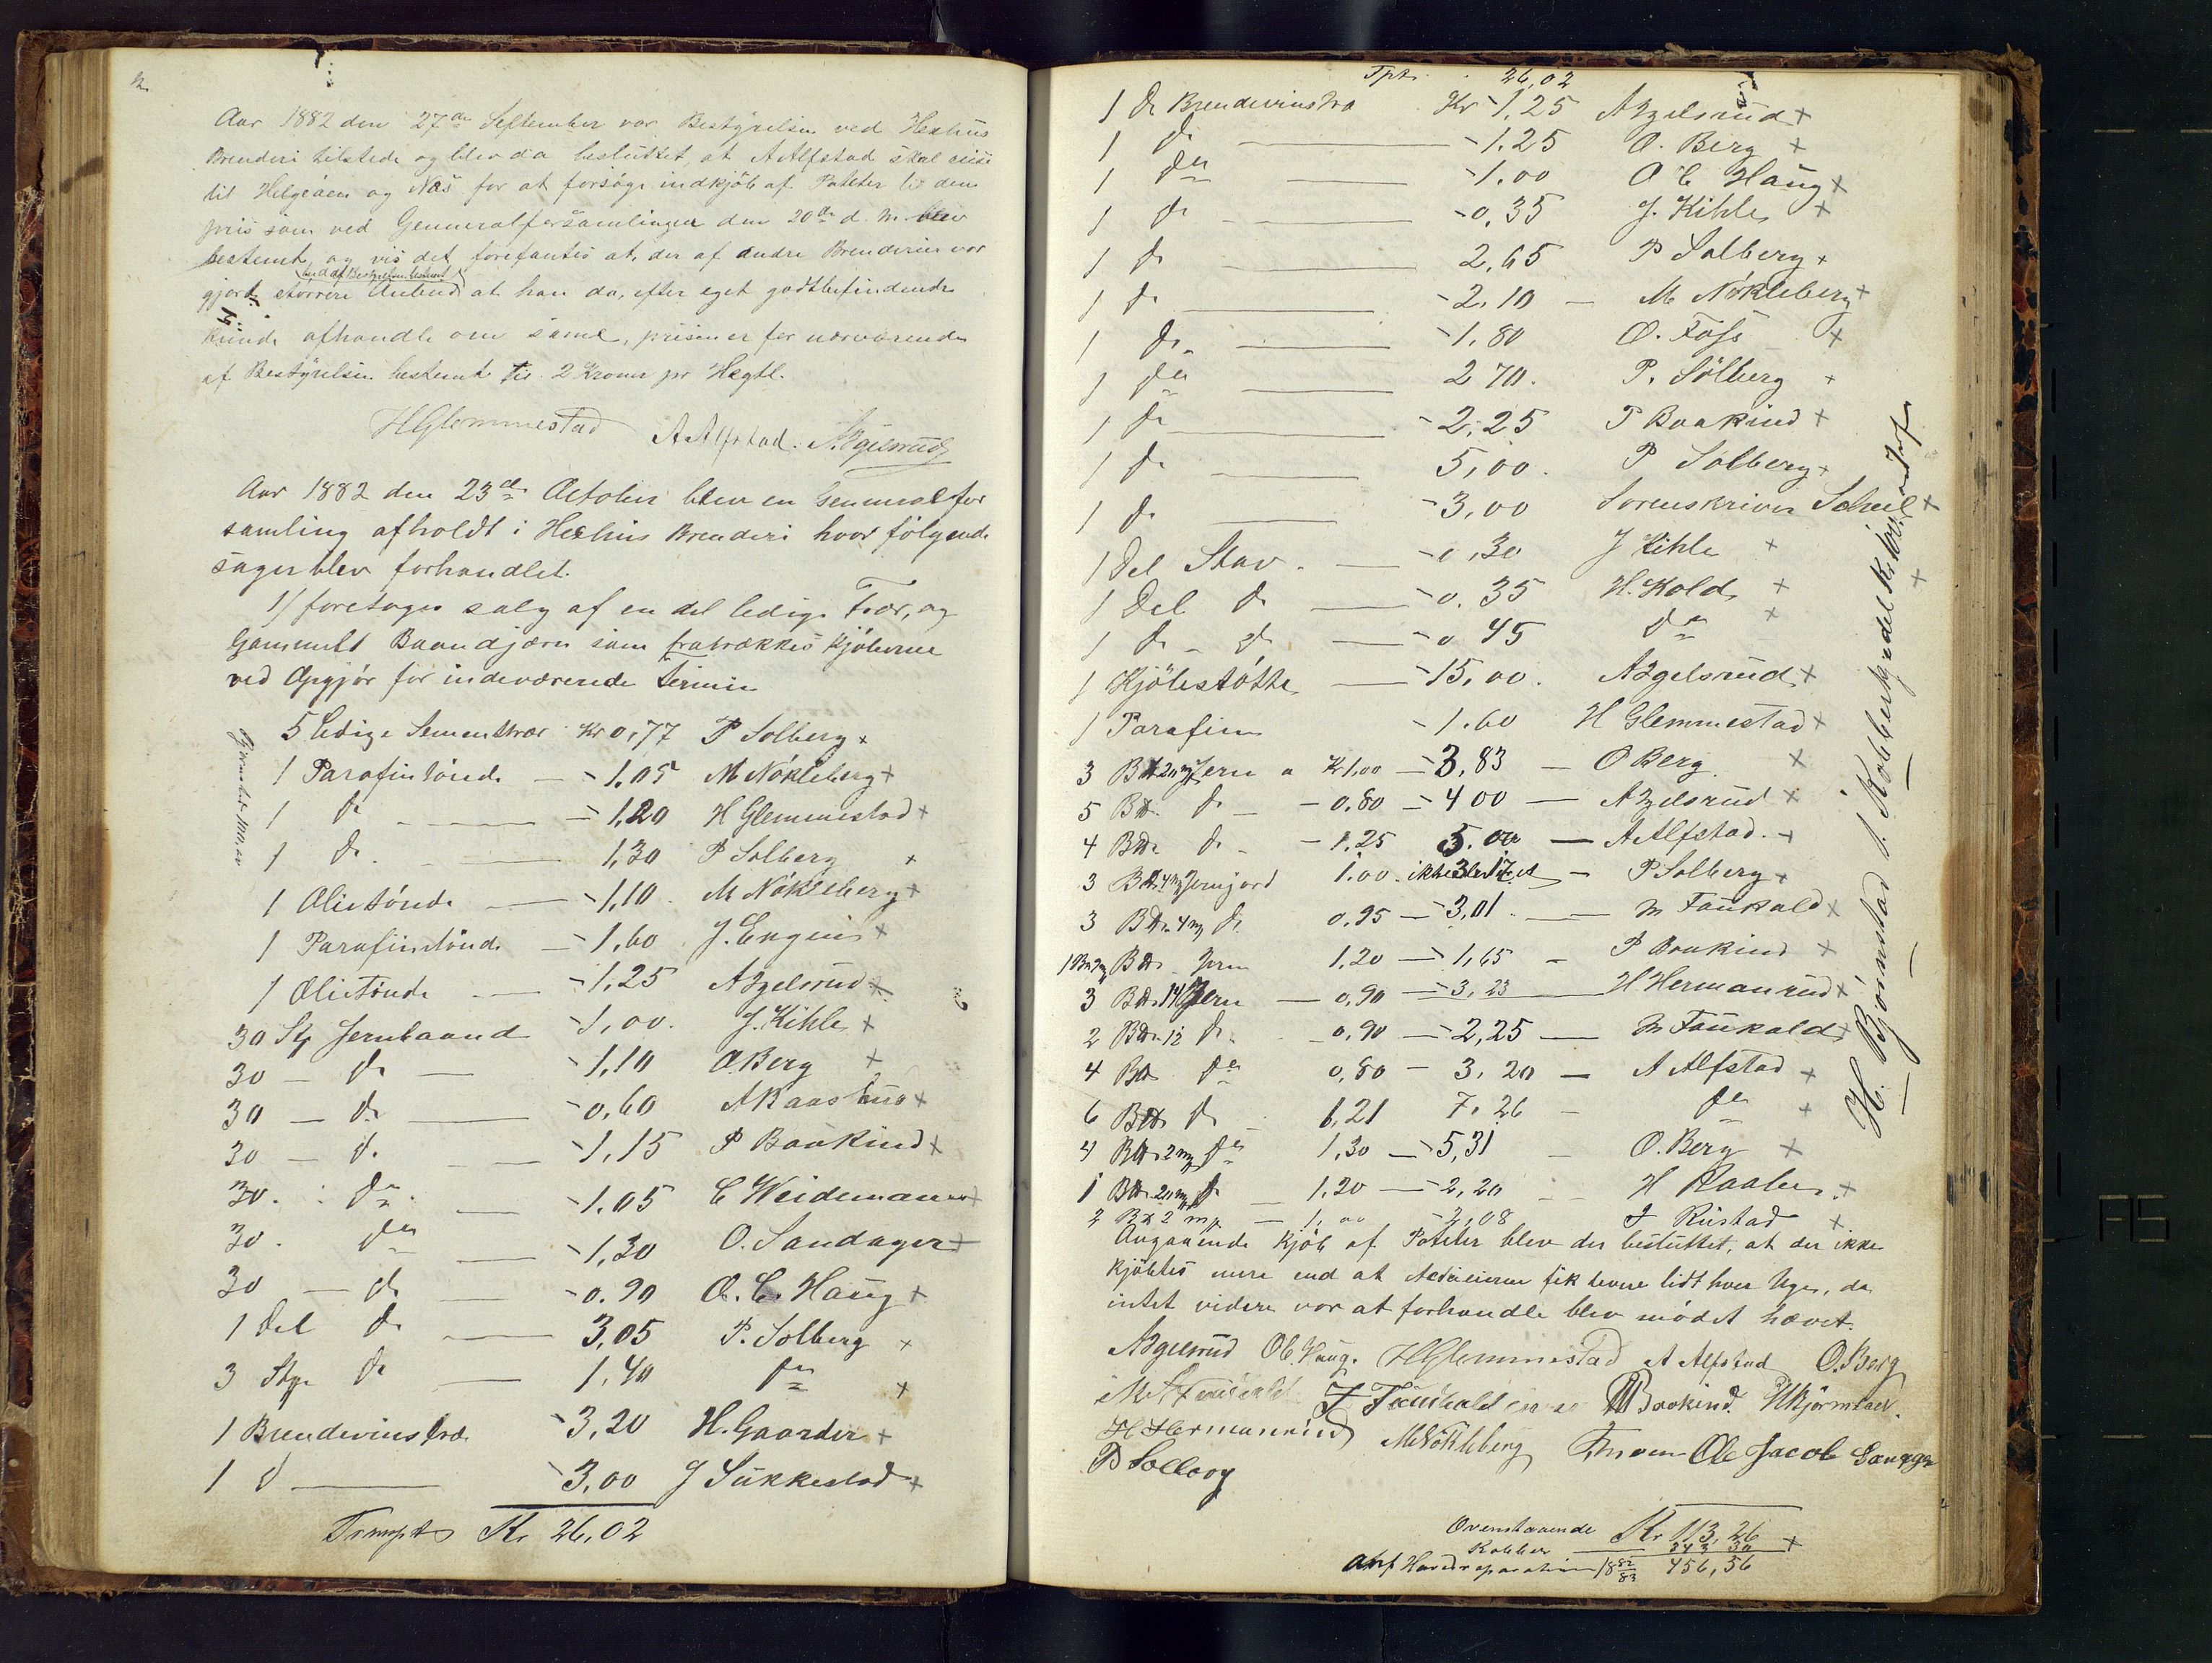 Aar 1882 den 27de September var Bestÿrelsen ved Hexhus
Brenderi tilstede og blev da besluttet, at A Alfstad skal reise
til Helgeåen og Næs for at forsöge indkjöb af Poteter til den
priis som ved Genneralforsamlingen den 20de d. m. blev
bestemt, og vis det forefantes at, der af andre Brenderier var
end af Bestyrelsen bestemt
gjort större Anbud at han da, efter eget godtbefindende
kunde afhandle om samme, prisen er for nærværende
af Bestÿrelsen bestemt til 2 Kroner pr Hegtl.
HGlemmestad A Alfstad. A. Bgelsrud
Aar 1882 den 23de October blev en Gennneralfor
samling afholdt i Hexhus Brenderi hvor fölgende
sager blev forhandlet.
1/ foretages salg af en del ledige For, og
Gammelt Baandjærn som fratrækkes Kjöberne
ved Opgjör for indeværende termin
5 Ledige Sementtrær Kr 0,77 P Solberg x
1 Parafintönde — - 1,05 M Nökleberg x
1 do — - 1,20 H Glemmestad x
1 do. — 1,30 P Solberg x
1 Olietönde — - 1,10 M Nökleberg x
1 Parafintönde — - 1,60 J. Engeius x
1 Olietönde — - 1,25 A Bgelsrud x
30 Stp Jernbaand - 1,00. J. Kihle x
30 — do — - 1,10 O Berg x
30 — do — - 0,60 A Kaashus x
30 — do — - 1,15 P Baakind x
30. do - 1,05 C Weideman x
30. do — - 1,30 O. Sandager x
30 — do — - 0.90 O. C. Haug x
1 Del do — 3,05 P. Solberg x
3 Stp do — 1,40 do x
1 Brendevinstræ - 3,20 H. Gaarder x
1 d — - 3,00 J Sukkestad x
Transpt Kr 26,02
Tpt. 26,02
1 do Brendevinstræ Kr - 1,25 A Bgelsrud x
1 do — - 1.25 O. Berg x
1 do — - 1.00 O C Haug x
1 do — - 0,35 J. Kihle x
1 do — 2,65 P Solberg x
1 do — - 2,10 — M Nökleberg x
1 do — - 1,80 O. Foss x
1 do — 2 70. P. Solberg x
1 do — - 2,25 P Baakind x
1 do — 5,00. P Solberg x
1 do — - 3,00 Sorenskriver Scheel x
1 Del Stav. — - 0,30 J Kihle x
1 Del do — - 0.35 H. Kolds x
1 do - do — - 0 45 do x
1 Kjölestötte — - 15,00. A Bgelsrud x
1 Parafin - 1.60 H Glemmestad x
3 Bdt 20 mg Jern a Kr 1,00 — 3,83 — O Berg. x
5 Bdt. do — - 0.80 — 4 00 — A Bgelsrud x
4 Bdt do - - 1,25 5.00 — A Alfstad. x
3 Bdt. 4 mg Jernjord 1.00. 3,17 — P Solberg x
3 Bdt. 4 mg do 0,95 — 3,01. — M Faukald x
Bdt Jern 1,20 — 1,65 - P Baakind x
3 Bdt. 14 Jern — 0,90 — 3,23 — H Hermanrud x
2 Bdt. 12 do. 0,90 — 2,25 — M Faukald x
4 Bdt do 0,80 — 3,20 — A Alfstad x
6 Bdt do - 1,21 7,26 - do x
4 Bdt. 2 mg do 1,30 — 5,31 - O. Berg x
1 Bdt. 20 mg do — 1,20 — 2,20 H Raaber x
2 Bdt 2 mg — 1,00 - 2,08 J Rustad x
Angaaende Kjöb af Poteter blev der besluttet, at der ikke
kjöbtes mere end at Actieeierne fik levere lidt hver Uge, da
intet videre var at forhandle blev mödet hævet.
A Bgelsrud O C Haug. HGlemmestad A Alfstad O. Berg
M Faukald J Faukald P Baakind. H Björnstad.
H Hermanrud M Nökleberg Ole Jacob
P Solberg
Ovenstaaende Kr 113,26
Kobber — 343 30 x
Hovedreparation 18 82/83 456,56
H. Bjönstad 1. Kobberkjedel Kr